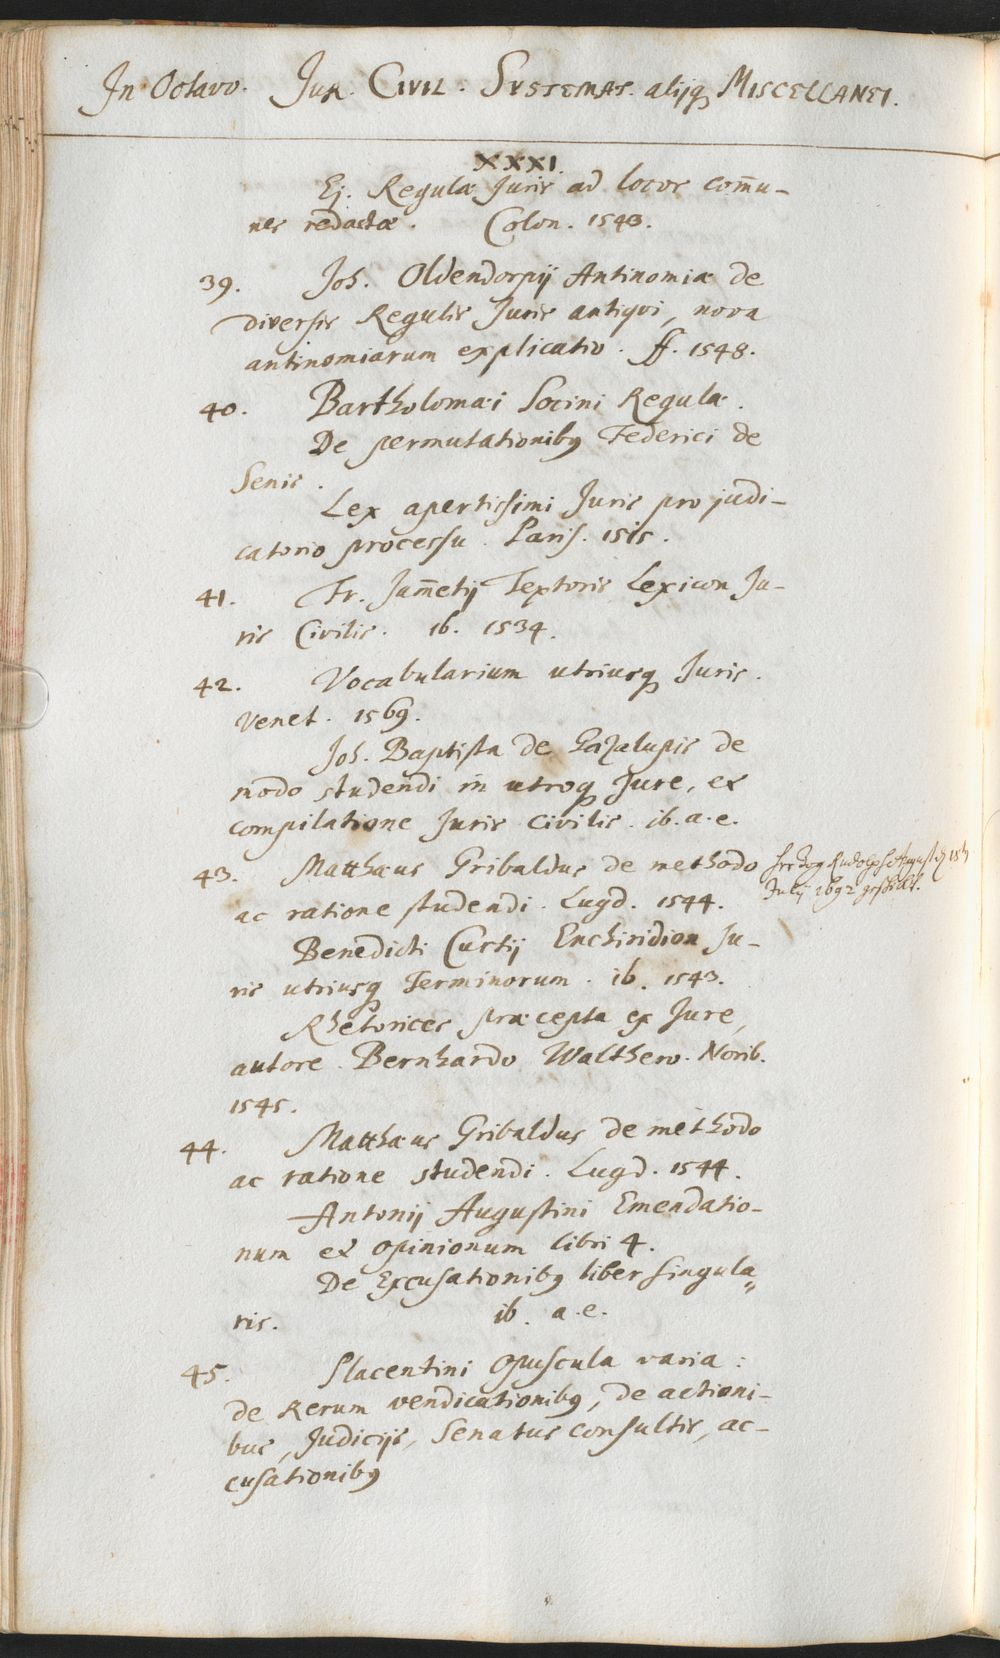 In Octavo. Jur. Civil. Systemat. alijq Miscellanei.
XXXI.
Ej. Regulæ Juris ad locos com̄u-
nes redactæ. Colon. 1543.
39. Joh. Oldendorpij Antinomiæ de
diversis Regulis Juris antiqui, nova
antinomiarum explicatio. ff. 1548.
40. Bartholomæi Socini Regulæ.
De permutationibq Federici de
Senis.
Lex apertissimi Juris pro judi-
catorio processu. Paris. 1515.
41. Fr. Jam̄etij Textoris Lexicon Ju-
ris Civilis. ib. 1534.
42. Vocabularium utriusq Juris.
Venet. 1569.
Joh. Baptista de Gazalupis de
modo studendi in utroq Jure, ex
compilatione Juris Civilis. ib. a. e.
43. Matthæus Gribaldus de methodo
ac ratione studendi. Lugd. 1544.
Hertzog Rudolph August
Julij 1692
Benedicti Curtij Enchiridion Ju-
ris utriusq Terminorum. ib. 1543.
Rhetorices præcepta ex Jure,
autore Bernhardo Walthero. Norib.
1545.
44. Matthæus Gribaldus de methodo
ac ratione studendi. Lugd. 1544.
Antonij Augustini Emendatio-
num et opinionum libri 4.
De Excusationibq liber singula„
ris. ib. a. e.
45. Placentini opuscula varia:
de Rerum vendicationibq, de actioni-
bus, Judicijs, Senatus consultis, ac-
cusationibq